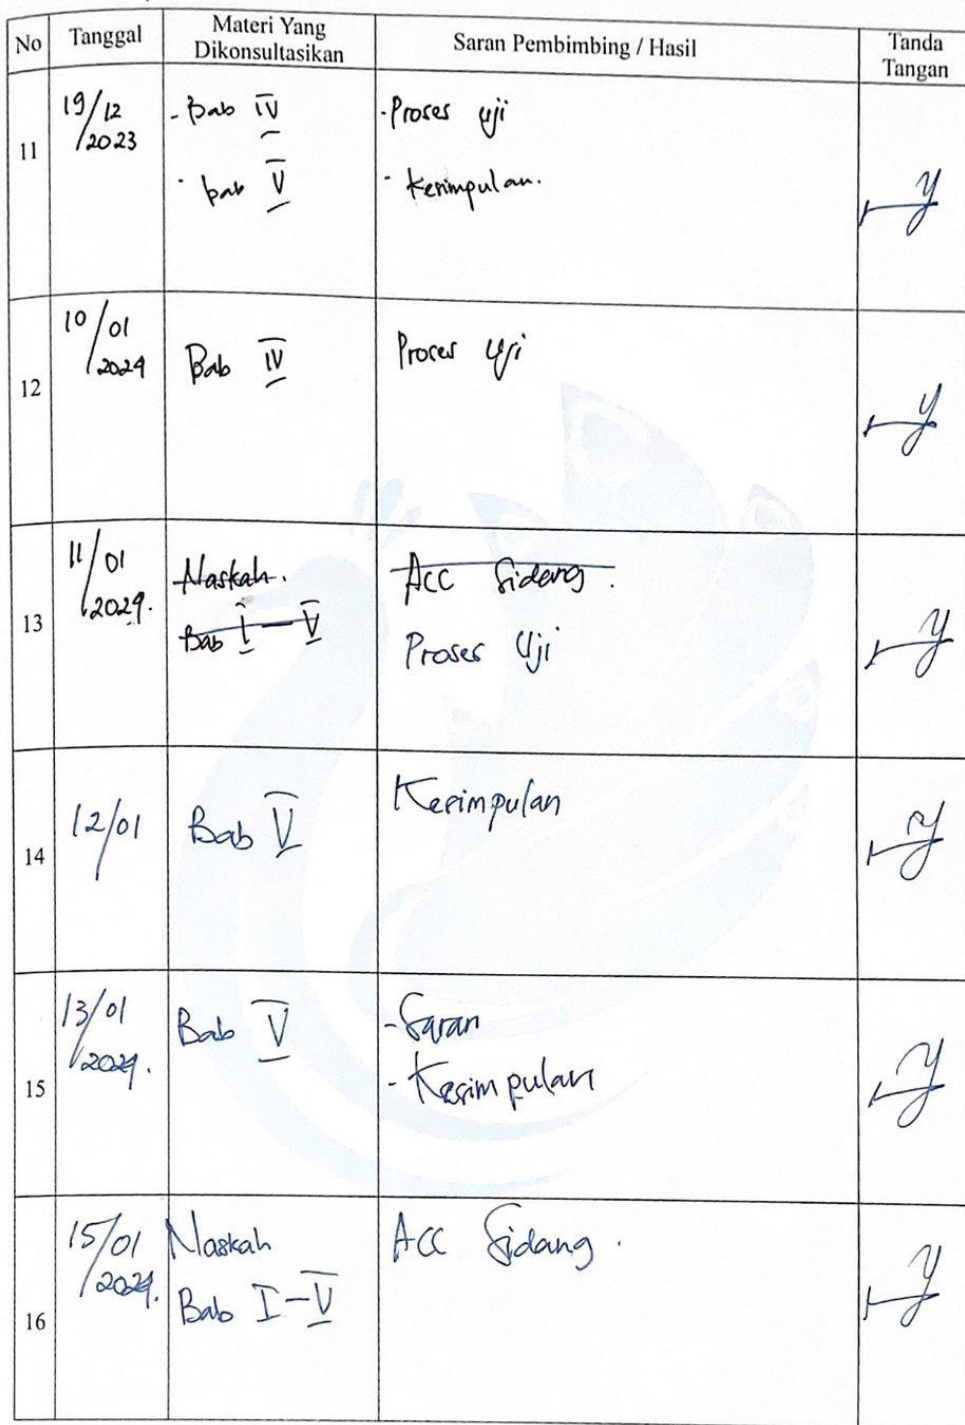 No Tanggal Materi Yang Dikonsultasikan Saran Pembimbing / Hasil Tanda Tangan
11 19/12/2023 - Bab IV - Proses uji
- bab V - Kesimpulan.
12 10/01/2024 Bab IV Proses Uji
13 11/01/2024. Naskah. Acc Sidang.
Bab I - V Proses Uji
14 12/01 Bab V Kesimpulan
15 13/01/2024. Bab V - Saran
- Kesimpulan
16 15/01/2024. Naskah Acc Sidang.
Bab I - V